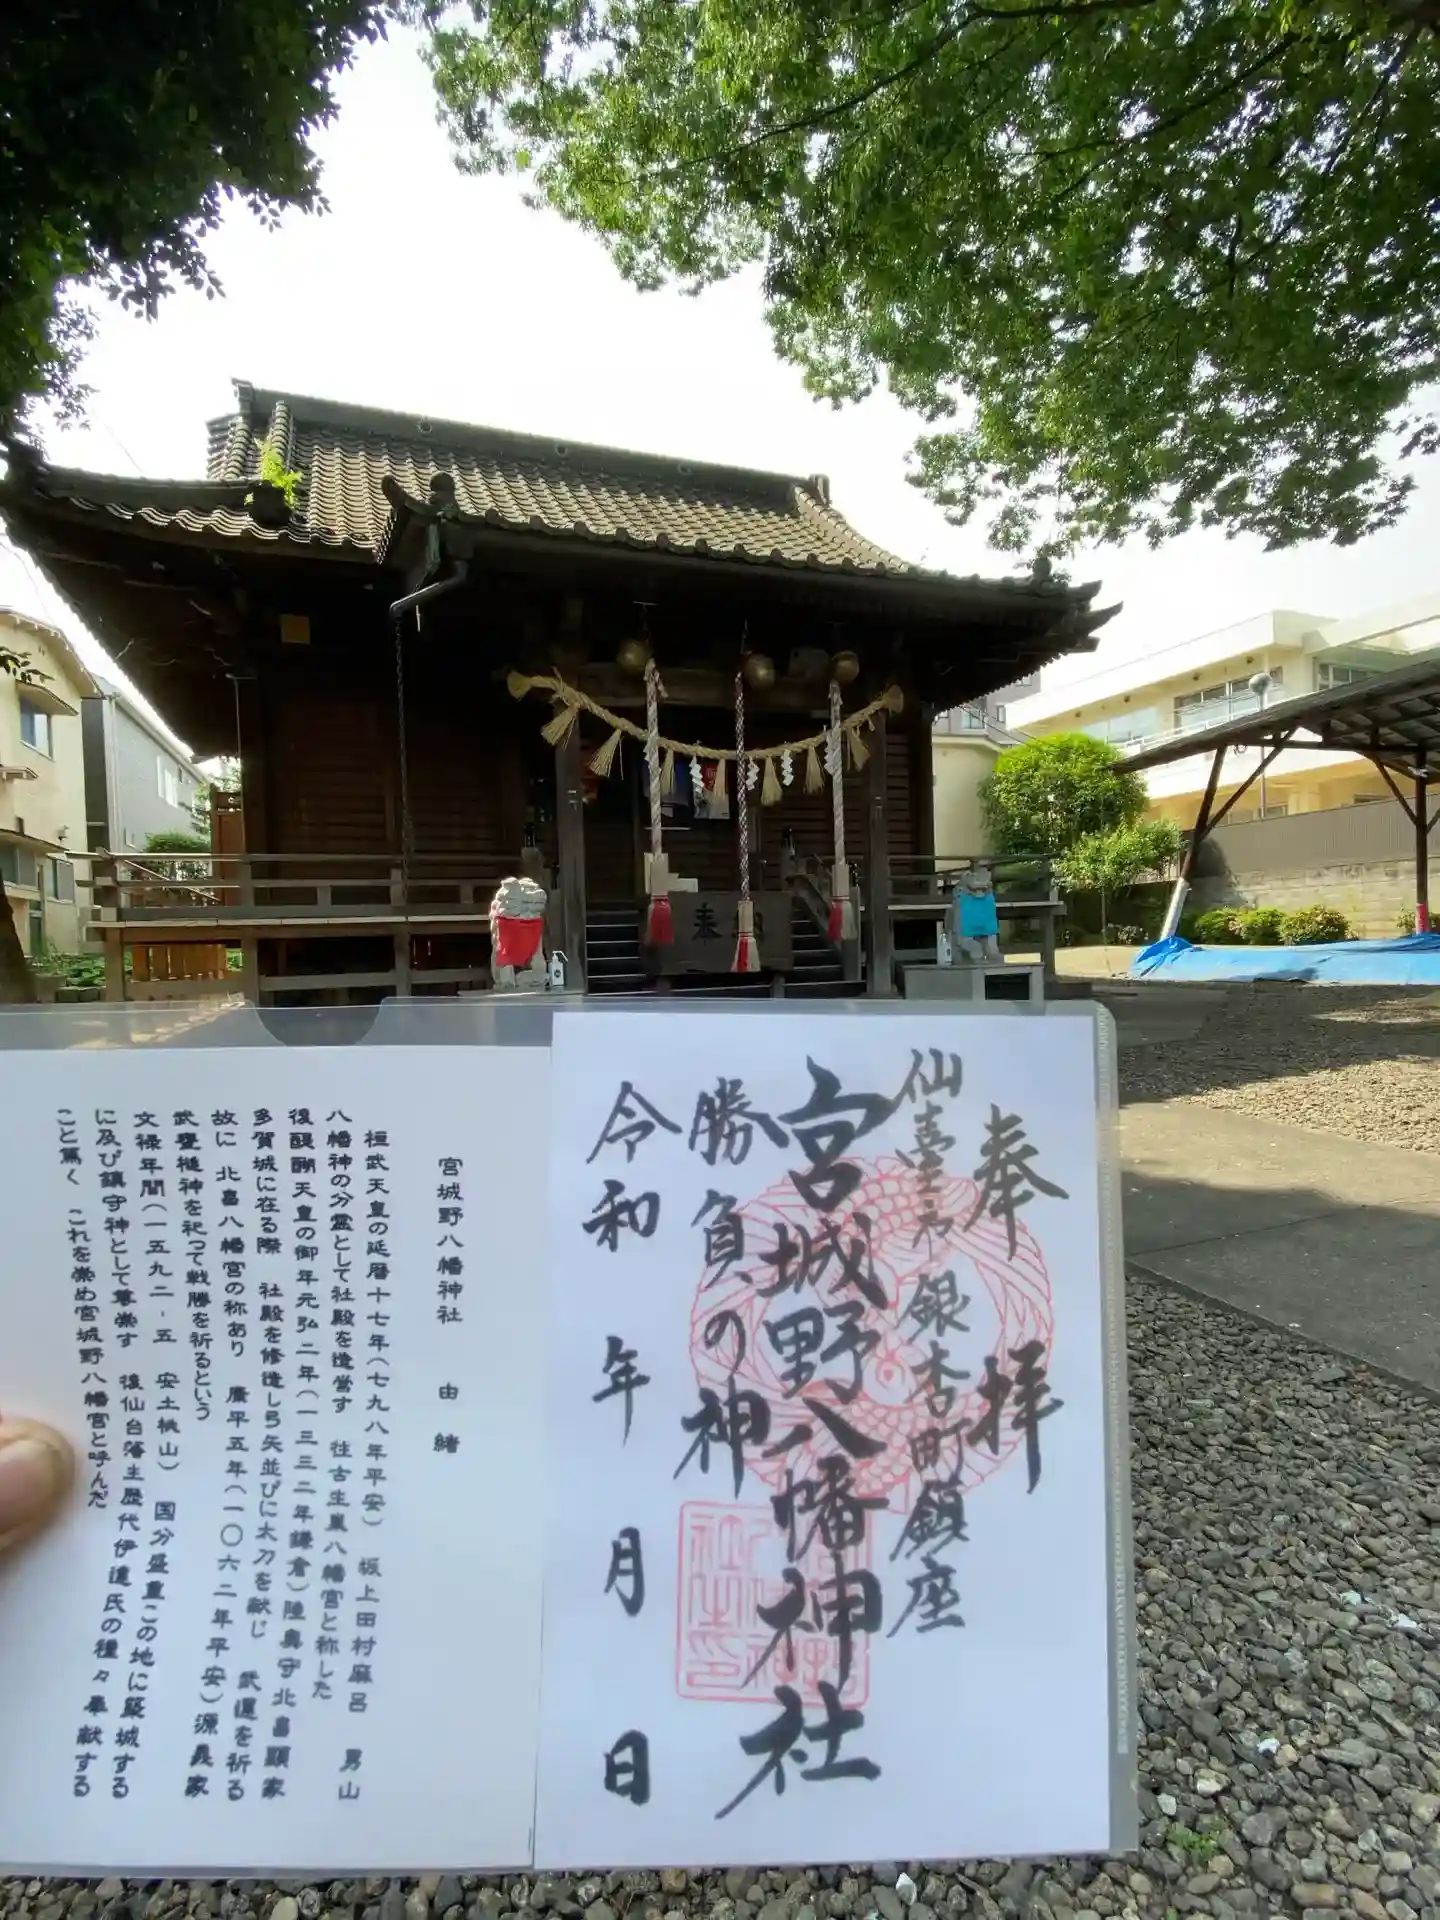 奉納
奉拝
仙臺市銀杏町鎮座
宮城野八幡神社
勝負の神
令和 年 月 日
宮城野八幡神社 由緒
桓武天皇の延暦十七年(七九八年平安) 坂上田村麻呂 男山
八幡神の分霊として社殿を造営す 往古生巣八幡宮と称した
後醍醐天皇の御年元弘二年(一三三二年鎌倉)陸奥守北畠顕家
多賀城に在る際 社殿を修造し弓矢並びに太刀を献じ 武運を祈る
故に 北畠八幡宮の称あり 康平五年(一〇六二年平安)源義家
武甕槌神を祀って戦勝を祈るという
文禄年間(一五九二-五 安土桃山) 国分盛重この地に築城する
に及び鎮守神として尊崇す 後仙台藩主歴代伊達氏の種々奉献する
こと篤く これを崇め宮城野八幡宮と呼んだ